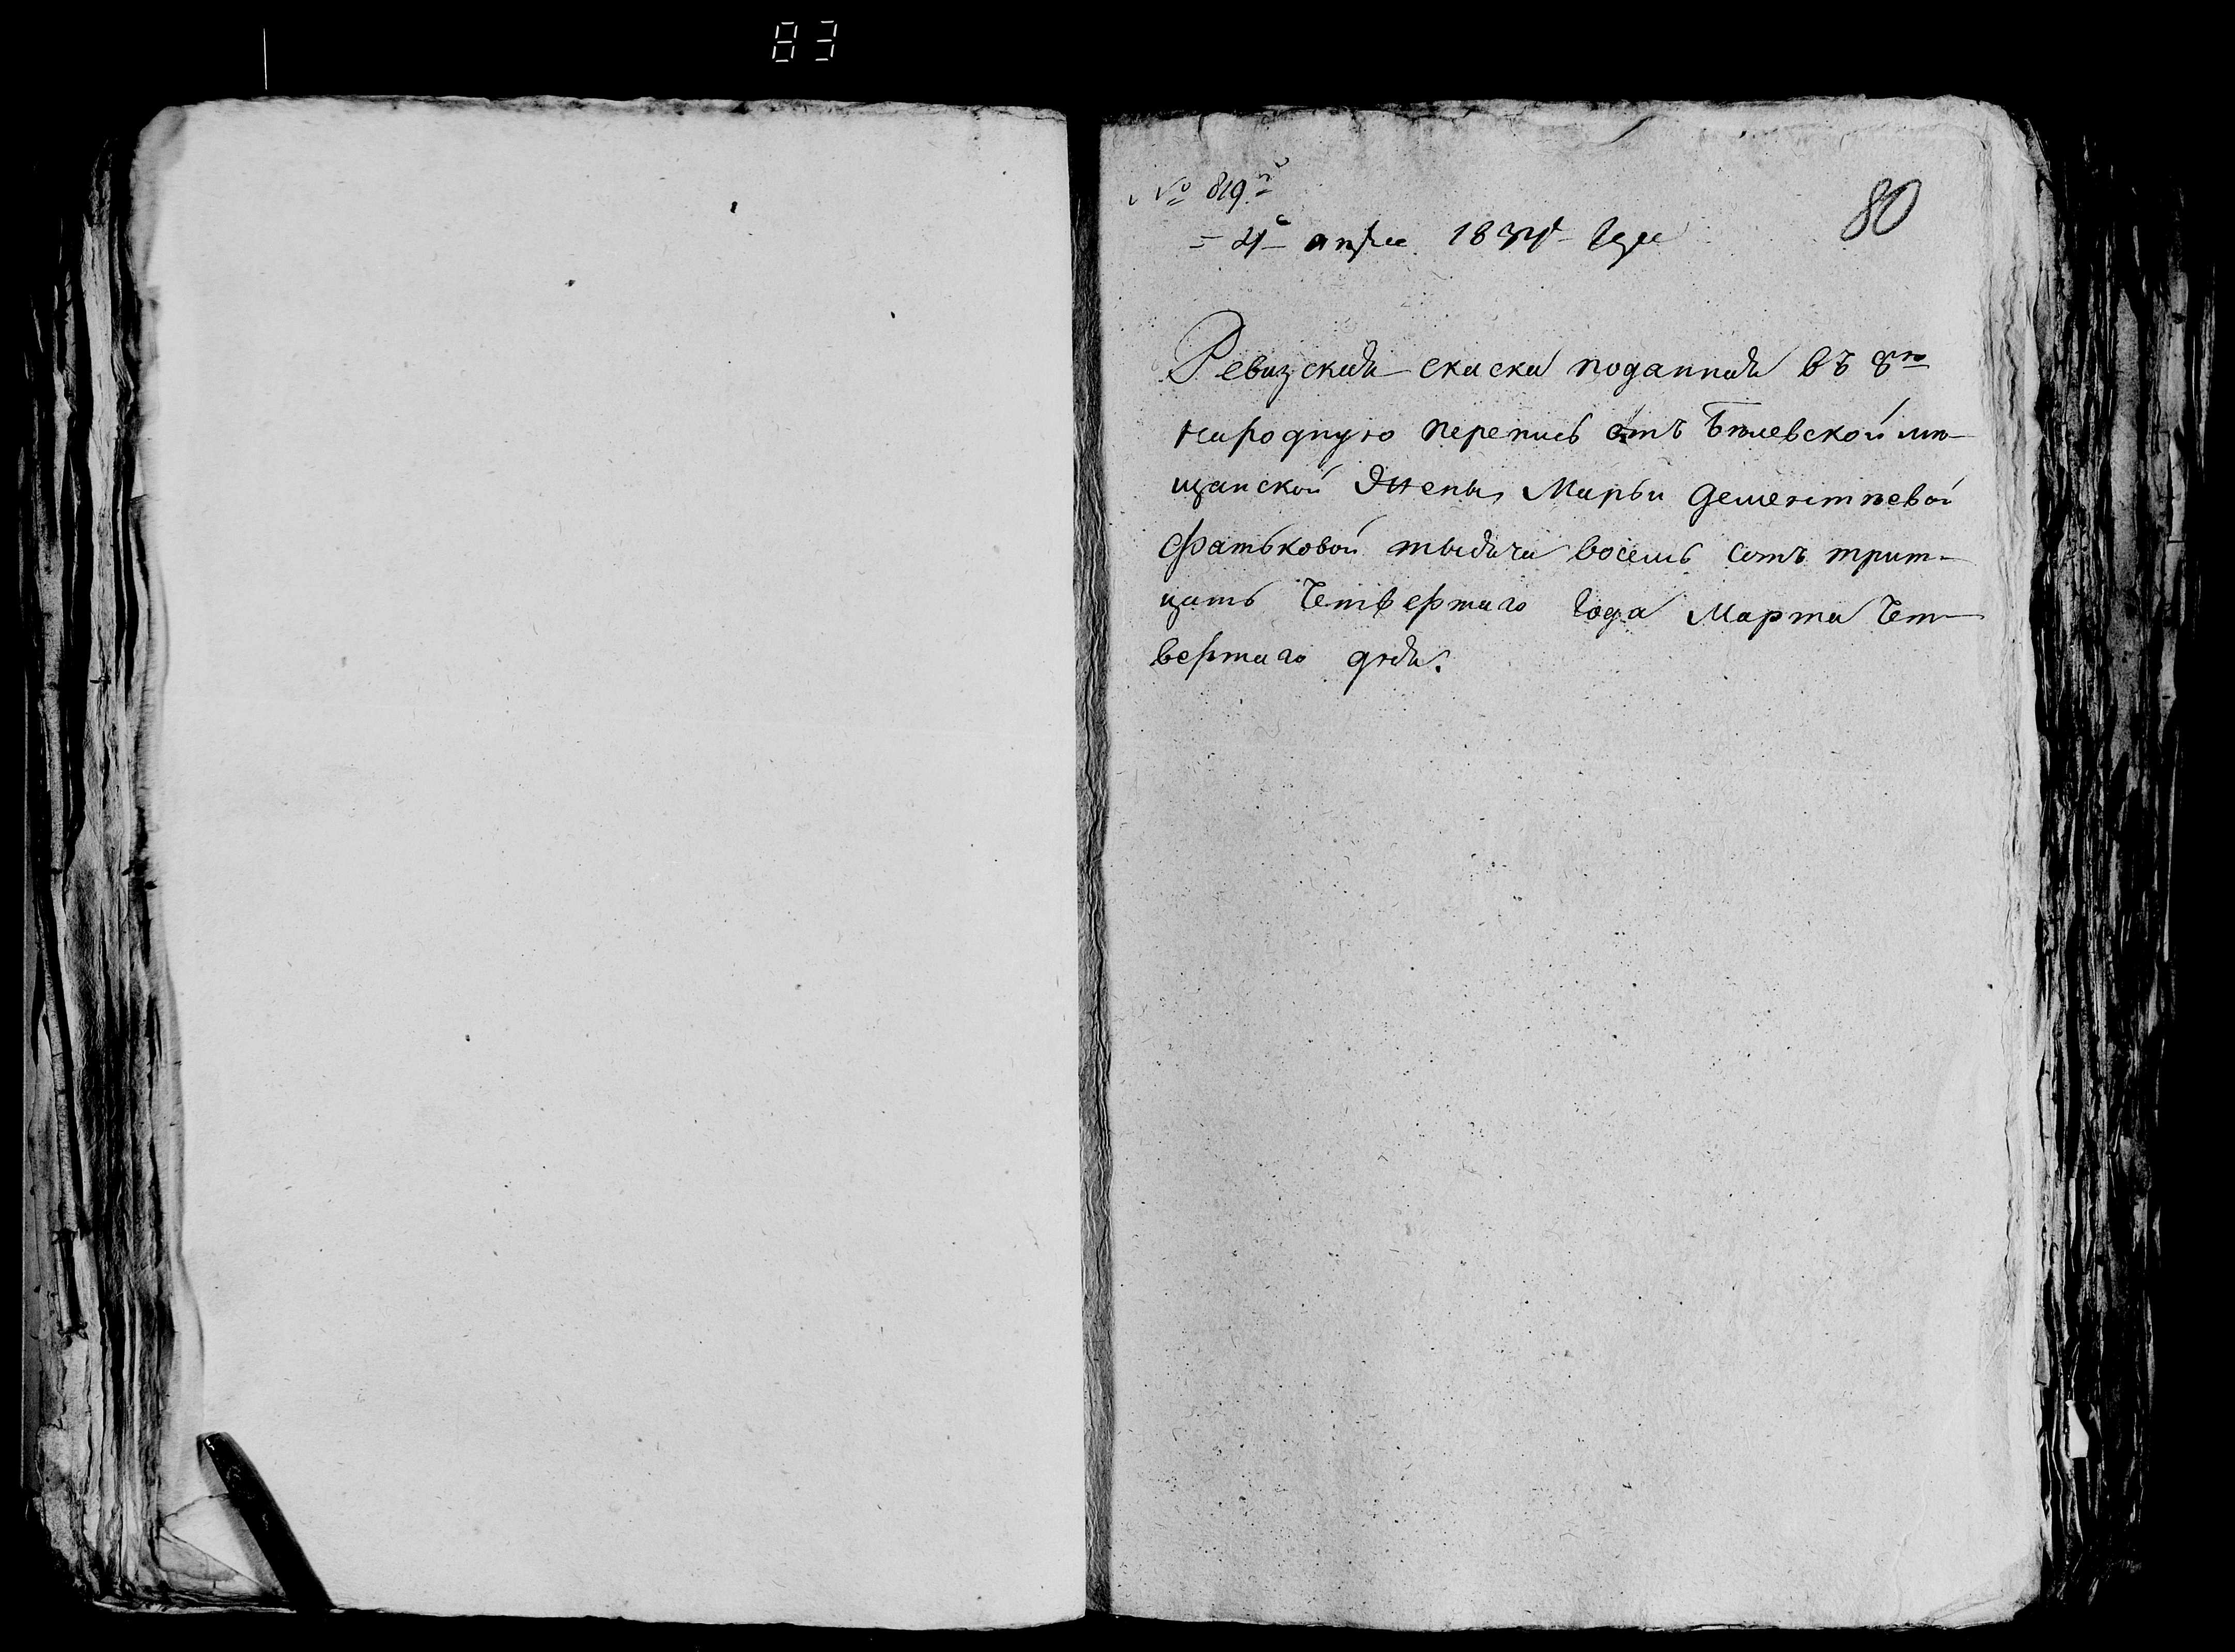 83
№ 819й
80
= 4е апрле 1834 года
Ревизская скаска поданная въ 8ю
народную перепись отъ Бѣлевской мѣ-
щанской жены Марьи Дементьевой
Фатьковой тысяча восемь сотъ трит-
цать Четвертаго Года Марта Чет-
вертаго дня.